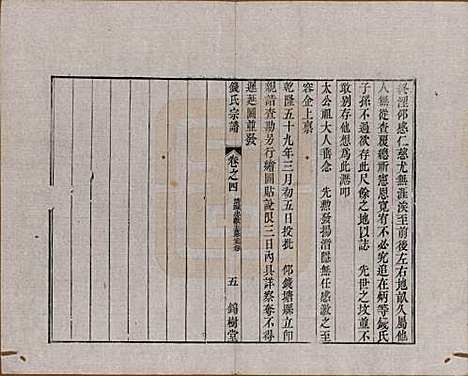 終涇仰感仁慈尤無涯涘至前後左右地畝久屬他
人無從查覆總斯憲恩寬宥不必究追在炳等錢氏
子孫不過欲存此尺餘之地以誌　先世之坟並不
敢别存他想爲此瀝叩
太公祖大人垂念　先勲發揚潛隱無任感激之至
容企上稟
乾隆五十九年三月初五日投批　仰錢塘縣立卽
親詣查勘另行繪圖貼說限三日內具詳察奪不得
遲延圖並發
錢氏宗譜
卷之四
五
錦樹堂